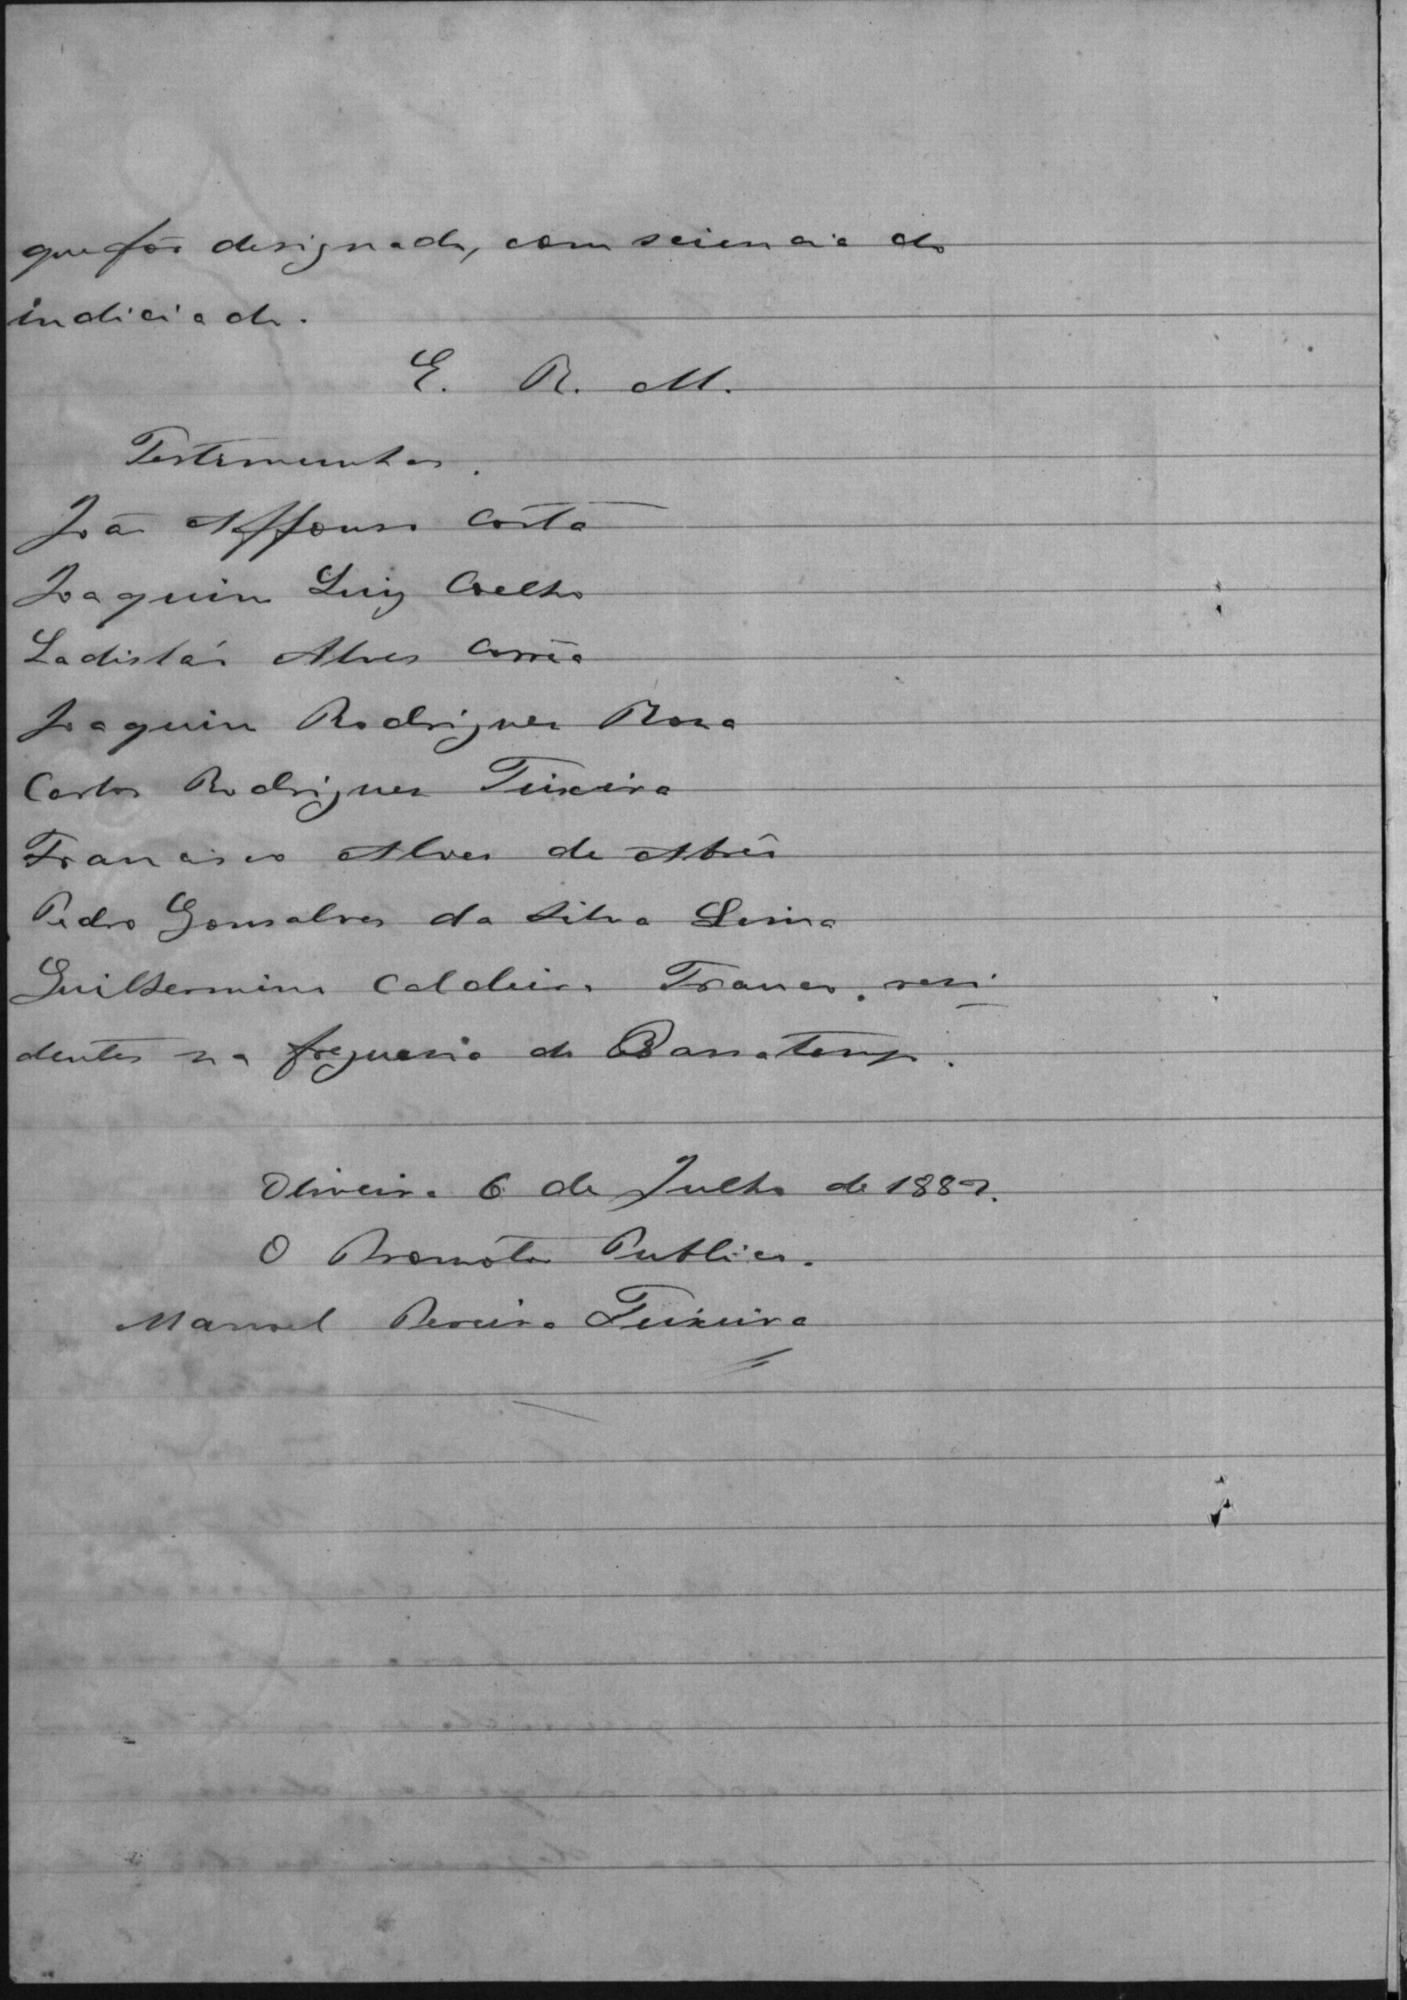 que fôr designado, com sciencia do
indiciado.
E. R. M.
Testemunhas.
João Affonso Costa
Joaquim Luiz Coelho
Ladisláo Alves Corrêa
Joaquim Rodrigues Rosa
Carlos Rodrigues Teixeira
Francisco Alves de Abrêo
Pedro Gonsalves da Silva Lima
Guilhermino Caldeira Franco, resi
dentes na freguesia do Passatempo.
Oliveira 6 de Julho de 1887.
O Promotor Publico.
Manoel Pereira Teixeira